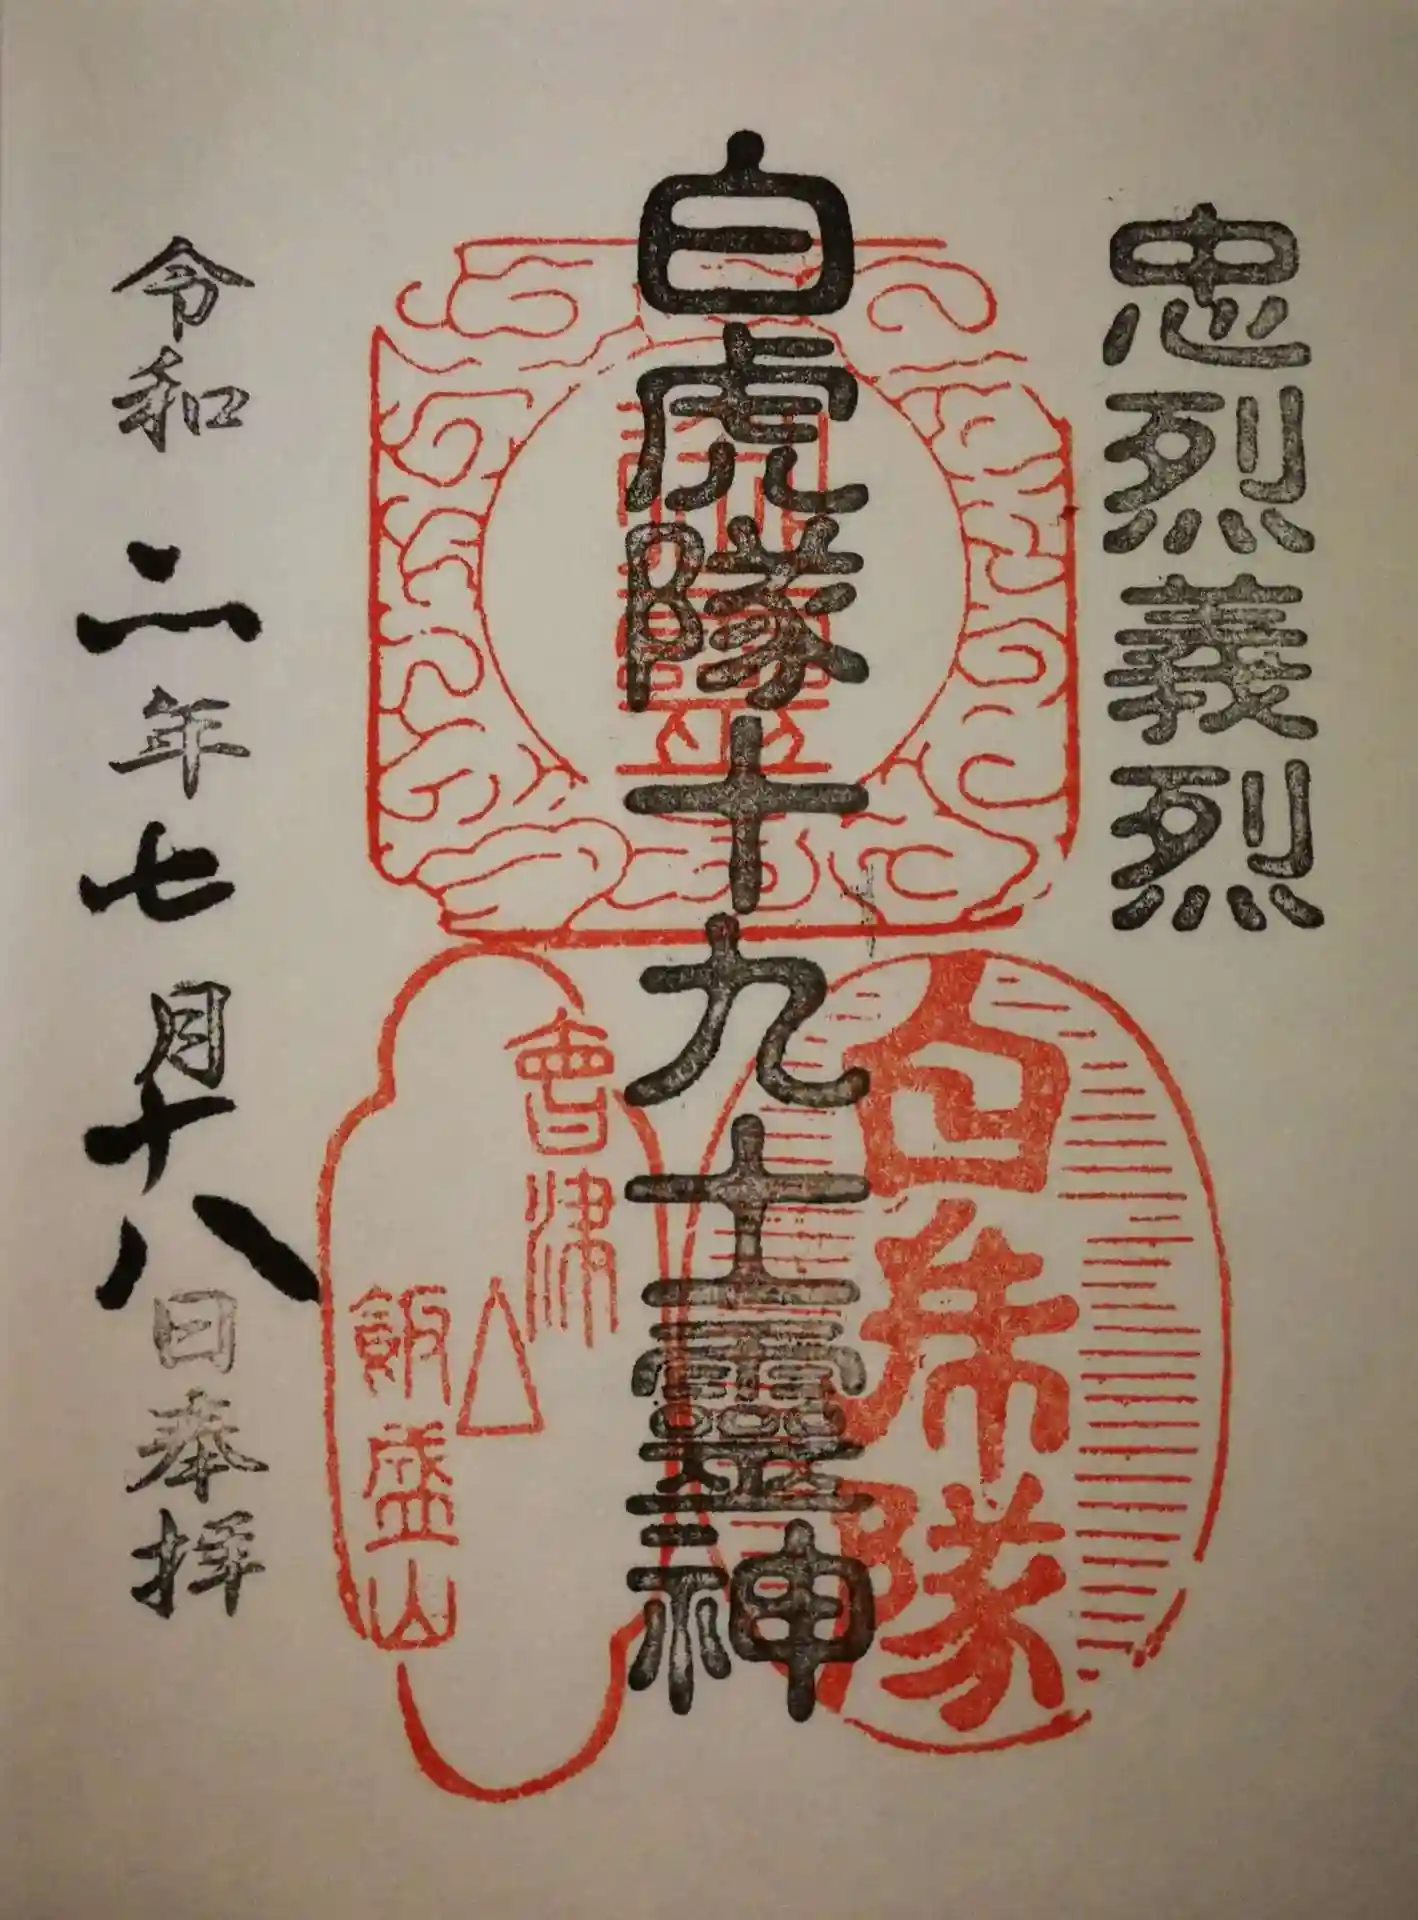 忠烈義烈
白虎隊十九士靈神
白虎隊
會津
飯盛山
令和二年七月十八日奉拝